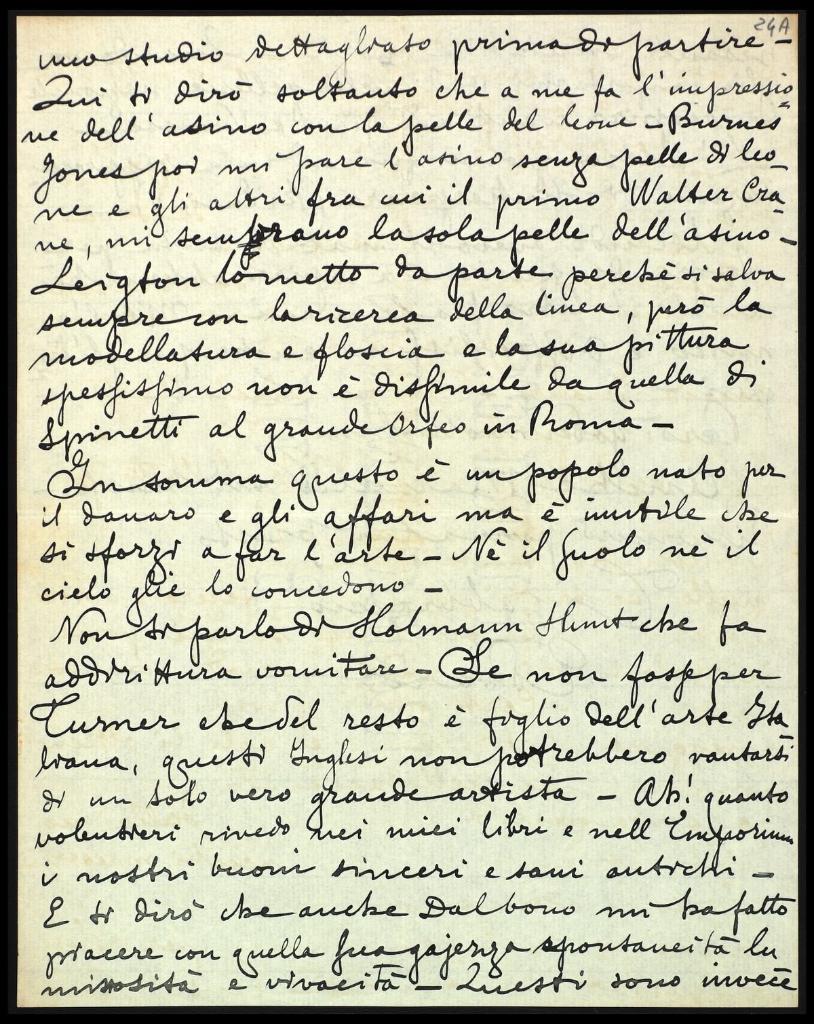 24A
uno studio dettagliato prima di partire –
Qui ti dirò soltanto che a me fa l'impressio-
ne dell'asino con la pelle del leone – Burnes
Jones poi mi pare l'asino senza pelle di leo-
ne e gli altri fra cui il primo Walter Cra-
ne, mi sembrano la sola pelle dell'asino –
Leigton lo metto da parte perchè si salva
sempre con la ricerca della linea, però la
modellatura e floscia e la sua pittura
spessissimo non è dissimile da quella di
Spinetti al grande Orfeo in Roma –
In somma questo è un popolo nato per
il danaro e gli affari ma è inutile che
si sforzi a far l'arte – Nè il suolo nè il
cielo glie lo concedono –
Non ti parlo di Holmann Hunt che fa
addirittura vomitare – Se non fosse per
Turner che del resto è figlio dell'arte Ita
liana, questi Inglesi non potrebbero vantarsi
di un solo vero grande artista – Ah! quanto
volentieri rivedo nei miei libri e nell'Emporium
i nostri buoni sinceri e sani antichi –
E ti dirò che anche Dalbono mi ha fatto
piacere con quella sua gajezza spontaneità lu
minosità e vivacità – Questi sono invece